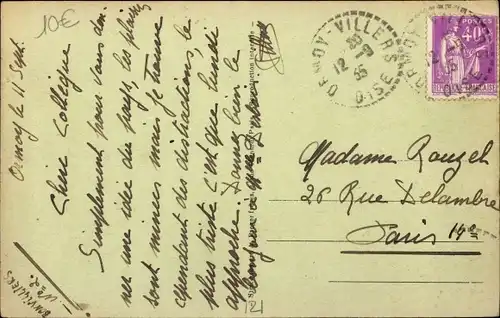 10€
Ormoy le 11 Sept.
Chère Collègue
Simplement pour vous don-
ner une idée du pays, les plaisirs
sont minces mais je trouve
cependant des distractions, le
plus triste c'est que lundi
approche. Donnez bien le
bonjour à Mme
ORMOY-VILLERS
30
12-9
35
OISE
POSTES
40c
Madame Rouzel
26 Rue Delambre
Paris 14e
21